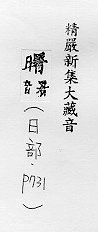 精嚴新集大藏音
音
（日部．P731）